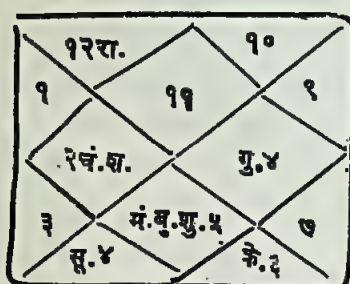 १२रा. १०
१ ११ ९
२चं.श. गु.४
३ मं.बु.शु.५ ७
सू.४ के.६